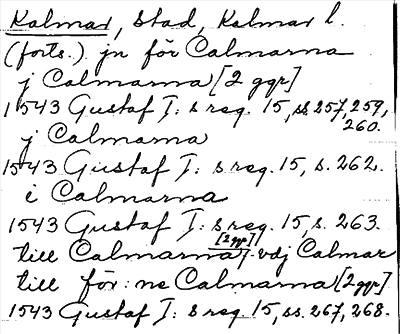 Kalmar, Stad, Kalmar l.
(forts.) jn för Calmarna
j Calmarna [2 ggr]
1543 Gustaf I: s reg. 15, ss. 257, 259,
260.
j Calmarna
1543 Gustaf I: s reg. 15, s. 262.
i Calmarna
1543 Gustaf I: s reg. 15, s. 263.
till Calmarna [2 ggr] vdj Calmar
till för: ne Calmarna [2 ggr]
1543 Gustaf I: s reg. 15, ss. 267, 268.